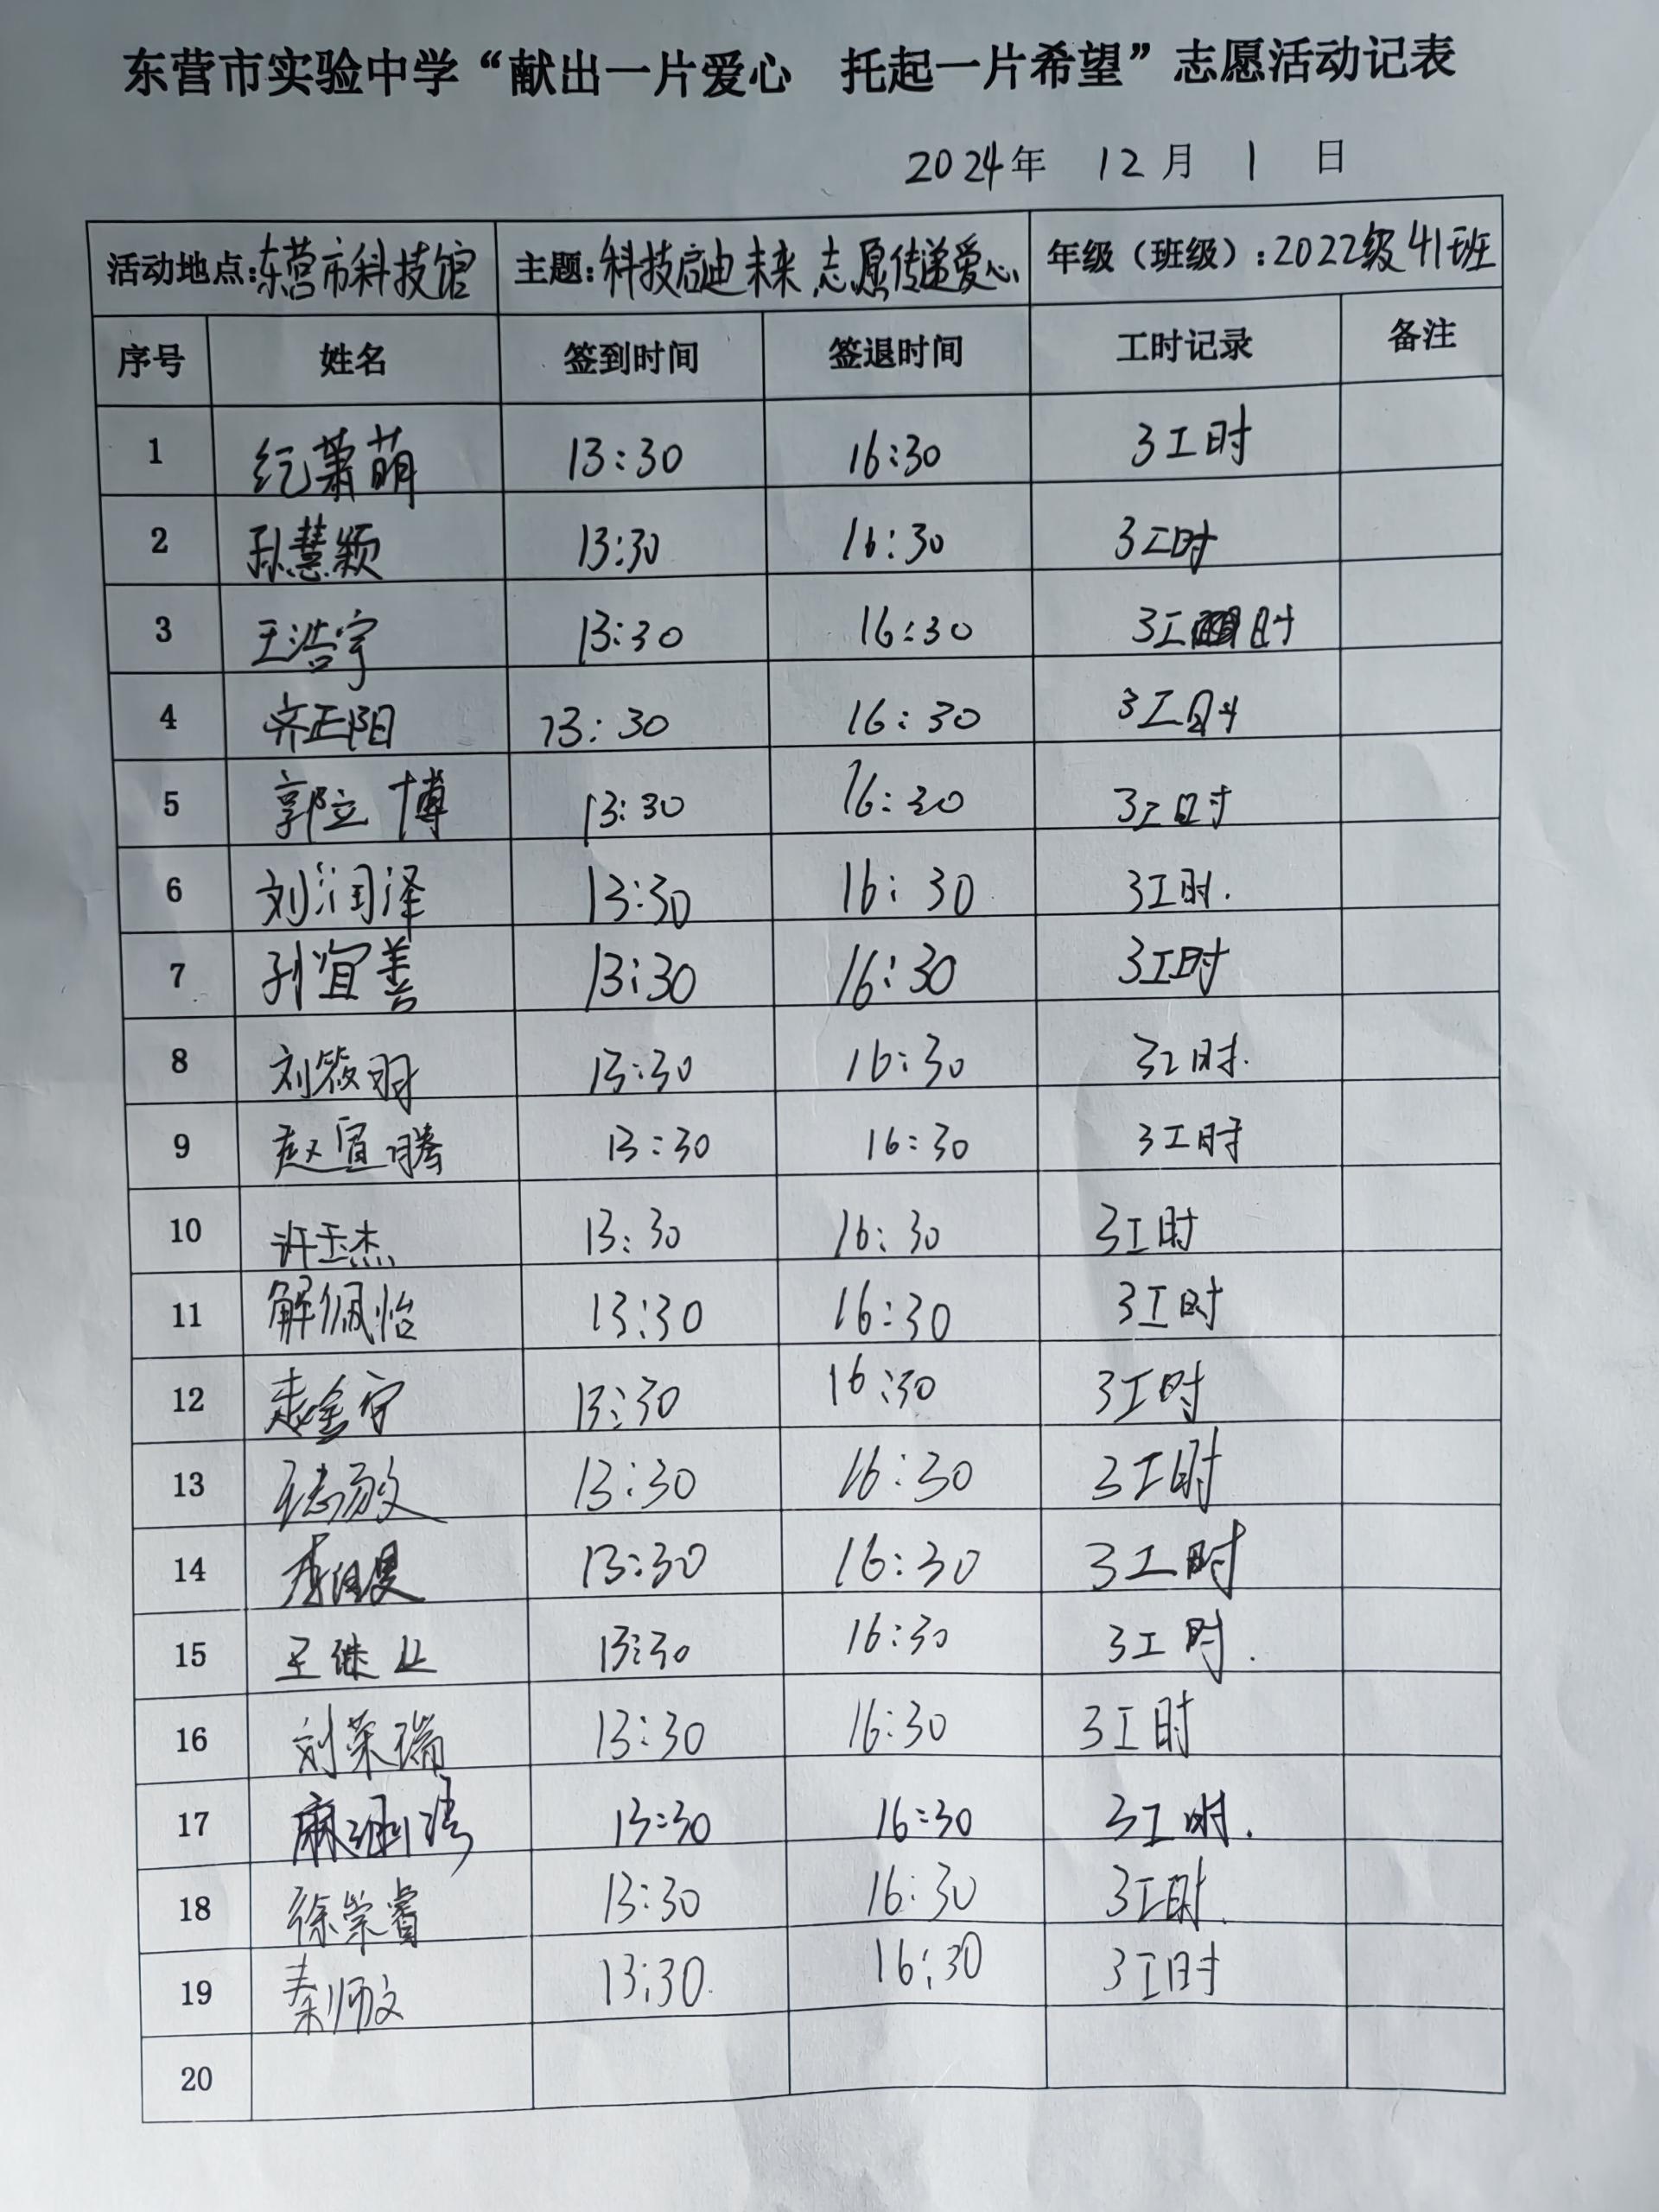 东营市实验中学“献出一片爱心　托起一片希望”志愿活动记表
2024年 12月 1 日
活动地点:东营市科技馆 主题:科技启迪未来,志愿传递爱心 年级（班级）:2022级41班
序号 姓名 签到时间 签退时间 工时记录 备注
1 纪萧萌 13:30 16:30 3工时
2 孙慧颖 13:30 16:30 3工时
3 王浩宇 13:30 16:30 3工时
4 齐正阳 13:30 16:30 3工时
5 郭立博 13:30 16:30 3工时
6 刘润泽 13:30 16:30 3工时.
7 孙宜善 13:30 16:30 3工时
8 刘筱羽 13:30 16:30 3工时.
9 赵宜腾 13:30 16:30 3工时
10 许玉杰 13:30 16:30 3工时
11 解佩怡 13:30 16:30 3工时
12 13:30 16:30 3工时
13 13:30 16:30 3工时
14 13:30 16:30 3工时
15 王继正 13:30 16:30 3工时.
16 刘荣瑞 13:30 16:30 3工时
17 13:30 16:30 3工时.
18 徐崇睿 13:30 16:30 3工时.
19 秦师文 13:30. 16:30 3工时
20